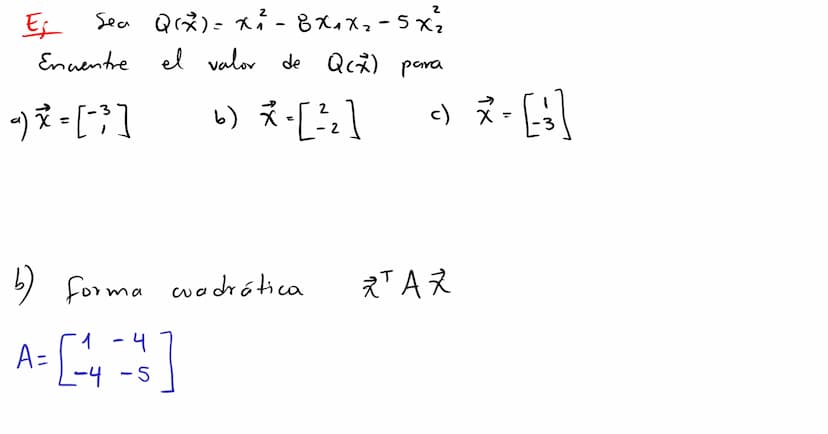 Ej Sea Q(x⃗) = x₁² - 8x₁x₂ - 5x₂²
Encuentre el valor de Q(x⃗) para
a) x⃗ = [-3 1] b) x⃗ = [2 -2] c) x⃗ = [1 -3]
b) forma cuadrática x⃗ᵀ A x⃗
A = [1 -4
-4 -5]